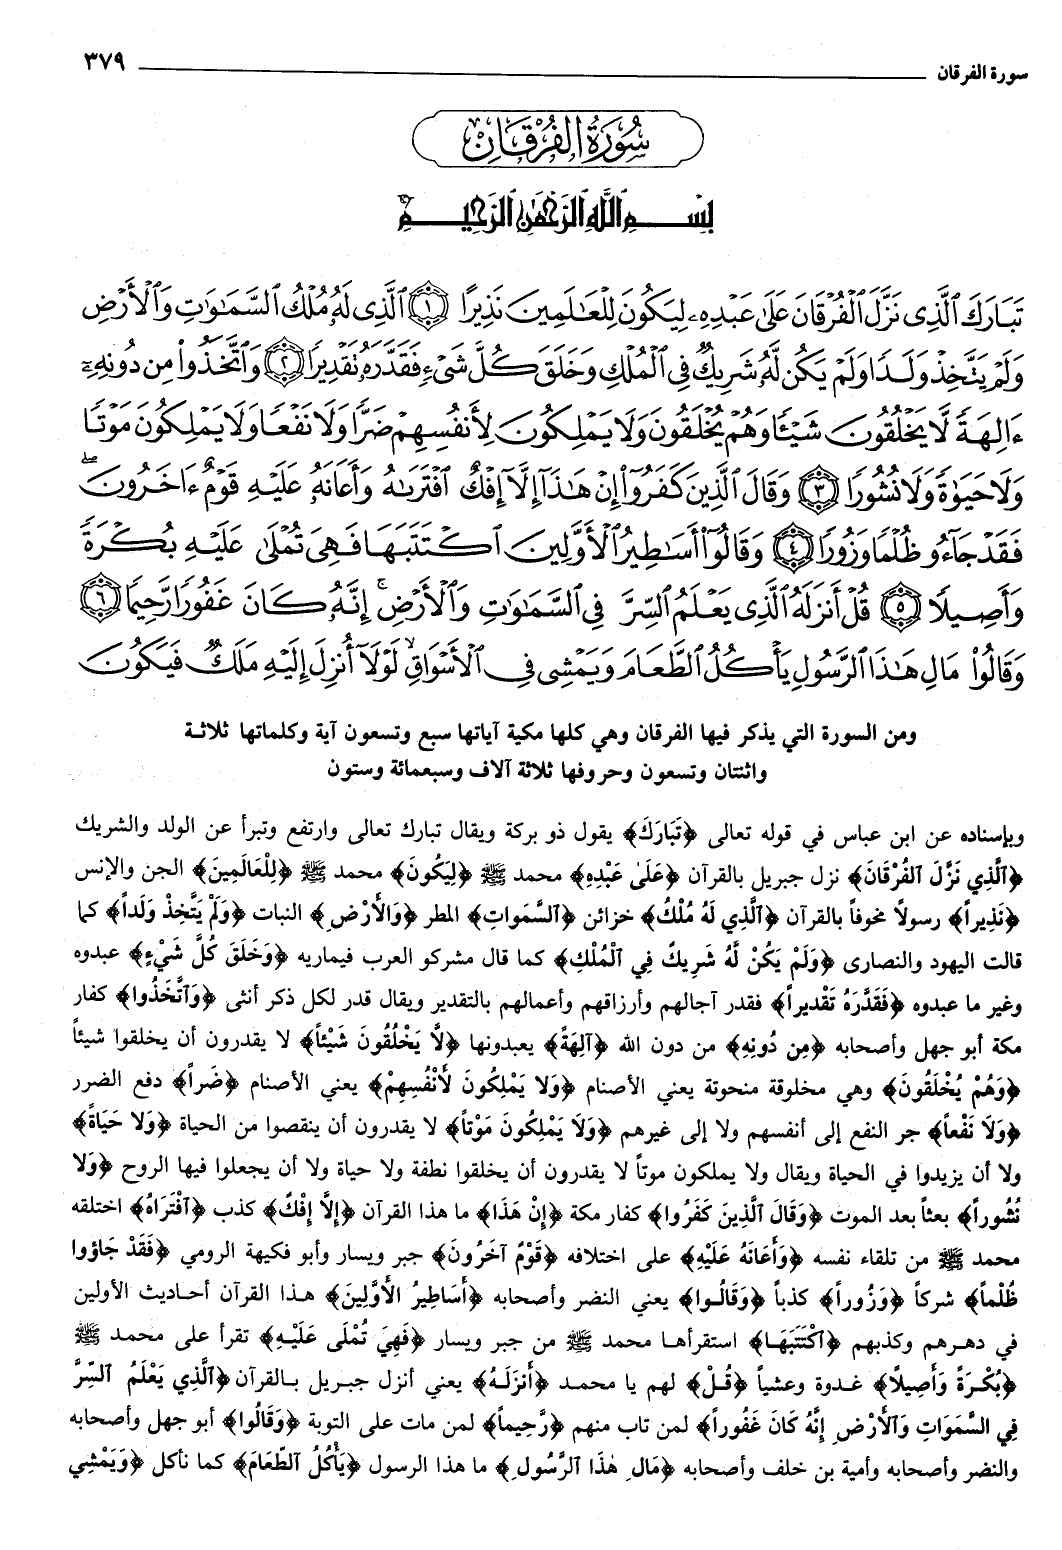 سورة الفرقان ٣٧٩
سُورَةُ الْفُرْقَانِ
بِسْمِ اللَّهِ الرَّحْمَٰنِ الرَّحِيمِ
تَبَارَكَ ٱلَّذِى نَزَّلَ ٱلْفُرْقَانَ عَلَىٰ عَبْدِهِۦ لِيَكُونَ لِلْعَٰلَمِينَ نَذِيرًا ١ ٱلَّذِى لَهُۥ مُلْكُ ٱلسَّمَٰوَٰتِ وَٱلْأَرْضِ
وَلَمْ يَتَّخِذْ وَلَدًا وَلَمْ يَكُن لَّهُۥ شَرِيكٌ فِى ٱلْمُلْكِ وَخَلَقَ كُلَّ شَىْءٍ فَقَدَّرَهُۥ تَقْدِيرًا ٢ وَٱتَّخَذُوا۟ مِن دُونِهِۦٓ
ءَالِهَةً لَّا يَخْلُقُونَ شَيْـًٔا وَهُمْ يُخْلَقُونَ وَلَا يَمْلِكُونَ لِأَنفُسِهِمْ ضَرًّا وَلَا نَفْعًا وَلَا يَمْلِكُونَ مَوْتًا
وَلَا حَيَوٰةً وَلَا نُشُورًا ٣ وَقَالَ ٱلَّذِينَ كَفَرُوٓا۟ إِنْ هَٰذَآ إِلَّآ إِفْكٌ ٱفْتَرَىٰهُ وَأَعَانَهُۥ عَلَيْهِ قَوْمٌ ءَاخَرُونَ ۖ
فَقَدْ جَآءُو ظُلْمًا وَزُورًا ٤ وَقَالُوٓا۟ أَسَٰطِيرُ ٱلْأَوَّلِينَ ٱكْتَتَبَهَا فَهِىَ تُمْلَىٰ عَلَيْهِ بُكْرَةً
وَأَصِيلًا ٥ قُلْ أَنزَلَهُ ٱلَّذِى يَعْلَمُ ٱلسِّرَّ فِى ٱلسَّمَٰوَٰتِ وَٱلْأَرْضِ ۚ إِنَّهُۥ كَانَ غَفُورًا رَّحِيمًا ٦
وَقَالُوا۟ مَالِ هَٰذَا ٱلرَّسُولِ يَأْكُلُ ٱلطَّعَامَ وَيَمْشِى فِى ٱلْأَسْوَاقِ ۙ لَوْلَآ أُنزِلَ إِلَيْهِ مَلَكٌ فَيَكُونَ
ومن السورة التي يذكر فيها الفرقان وهي كلها مكية آياتها سبع وتسعون آية وكلماتها ثلاثة
واثنتان وتسعون وحروفها ثلاثة آلاف وسبعمائة وستون
وبإسناده عن ابن عباس في قوله تعالى ﴿تَبَارَكَ﴾ يقول ذو بركة ويقال تبارك تعالى وارتفع وتبرأ عن الولد والشريك
﴿ٱلَّذِي نَزَّلَ ٱلفُرْقَانَ﴾ نزل جبريل بالقرآن ﴿عَلَىٰ عَبْدِهِ﴾ محمد ﷺ ﴿لِيَكُونَ﴾ محمد ﷺ ﴿لِلْعَالَمِينَ﴾ الجن والإنس
﴿نَذِيراً﴾ رسولاً مخوفاً بالقرآن ﴿ٱلَّذِي لَهُ مُلْكُ﴾ خزائن ﴿ٱلسَّمَواتِ﴾ المطر ﴿وَٱلأَرْضِ﴾ النبات ﴿وَلَمْ يَتَّخِذْ وَلَداً﴾ كما
قالت اليهود والنصارى ﴿وَلَمْ يَكُنْ لَّهُ شَرِيكٌ فِي ٱلْمُلْكِ﴾ كما قال مشركو العرب فيماريه ﴿وَخَلَقَ كُلَّ شَيْءٍ﴾ عبدوه
وغير ما عبدوه ﴿فَقَدَّرَهُ تَقْدِيراً﴾ فقدر آجالهم وأرزاقهم وأعمالهم بالتقدير ويقال قدر لكل ذكر أنثى ﴿وَٱتَّخَذُوا﴾ كفار
مكة أبو جهل وأصحابه ﴿مِن دُونِهِ﴾ من دون الله ﴿آلِهَةً﴾ يعبدونها ﴿لاَّ يَخْلُقُونَ شَيْئاً﴾ لا يقدرون أن يخلقوا شيئاً
﴿وَهُمْ يُخْلَقُونَ﴾ وهي مخلوقة منحوتة يعني الأصنام ﴿وَلا يَمْلِكُونَ لأَنْفُسِهِمْ﴾ يعني الأصنام ﴿ضَراً﴾ دفع الضرر
﴿وَلَا نَفْعاً﴾ جر النفع إلى أنفسهم ولا إلى غيرهم ﴿وَلَا يَمْلِكُونَ مَوْتاً﴾ لا يقدرون أن ينقصوا من الحياة ﴿وَلا حَيَاةً﴾
ولا أن يزيدوا في الحياة ويقال ولا يملكون موتاً لا يقدرون أن يخلقوا نطفة ولا حياة ولا أن يجعلوا فيها الروح ﴿وَلا
نُشُوراً﴾ بعثاً بعد الموت ﴿وَقَالَ ٱلَّذِينَ كَفَرُوا﴾ كفار مكة ﴿إِنْ هَذَا﴾ ما هذا القرآن ﴿إِلاَّ إِفْكٌ﴾ كذب ﴿ٱفْتَرَاهُ﴾ اختلقه
محمد ﷺ من تلقاء نفسه ﴿وَأَعَانَهُ عَلَيْهِ﴾ على اختلافه ﴿قَوْمٌ آخَرُونَ﴾ جبر ويسار وأبو فكيهة الرومي ﴿فَقَدْ جَاؤوا
ظُلْماً﴾ شركاً ﴿وَزُوراً﴾ كذباً ﴿وَقَالُوا﴾ يعني النضر وأصحابه ﴿أَسَاطِيرُ الأَوَّلِينَ﴾ هذا القرآن أحاديث الأولين
في دهرهم وكذبهم ﴿ٱكْتَتَبَهَا﴾ استقرأها محمد ﷺ من جبر ويسار ﴿فَهِيَ تُمْلَى عَلَيْهِ﴾ تقرأ على محمد ﷺ
﴿بُكْرَةً وَأَصِيلًا﴾ غدوة وعشياً ﴿قُلْ﴾ لهم يا محمد ﴿أَنزَلَهُ﴾ يعني أنزل جبريل بالقرآن ﴿ٱلَّذِي يَعْلَمُ ٱلسِّرَّ
فِي السَّمَوَاتِ وَٱلأَرْضِ إِنَّهُ كَانَ غَفُوراً﴾ لمن تاب منهم ﴿رَّحِيماً﴾ لمن مات على التوبة ﴿وَقَالُوا﴾ أبو جهل وأصحابه
والنضر وأصحابه وأمية بن خلف وأصحابه ﴿مَالِ هٰذَا ٱلرَّسُولِ﴾ ما هذا الرسول ﴿يَأْكُلُ ٱلطَّعَامَ﴾ كما نأكل ﴿وَيَمْشِي